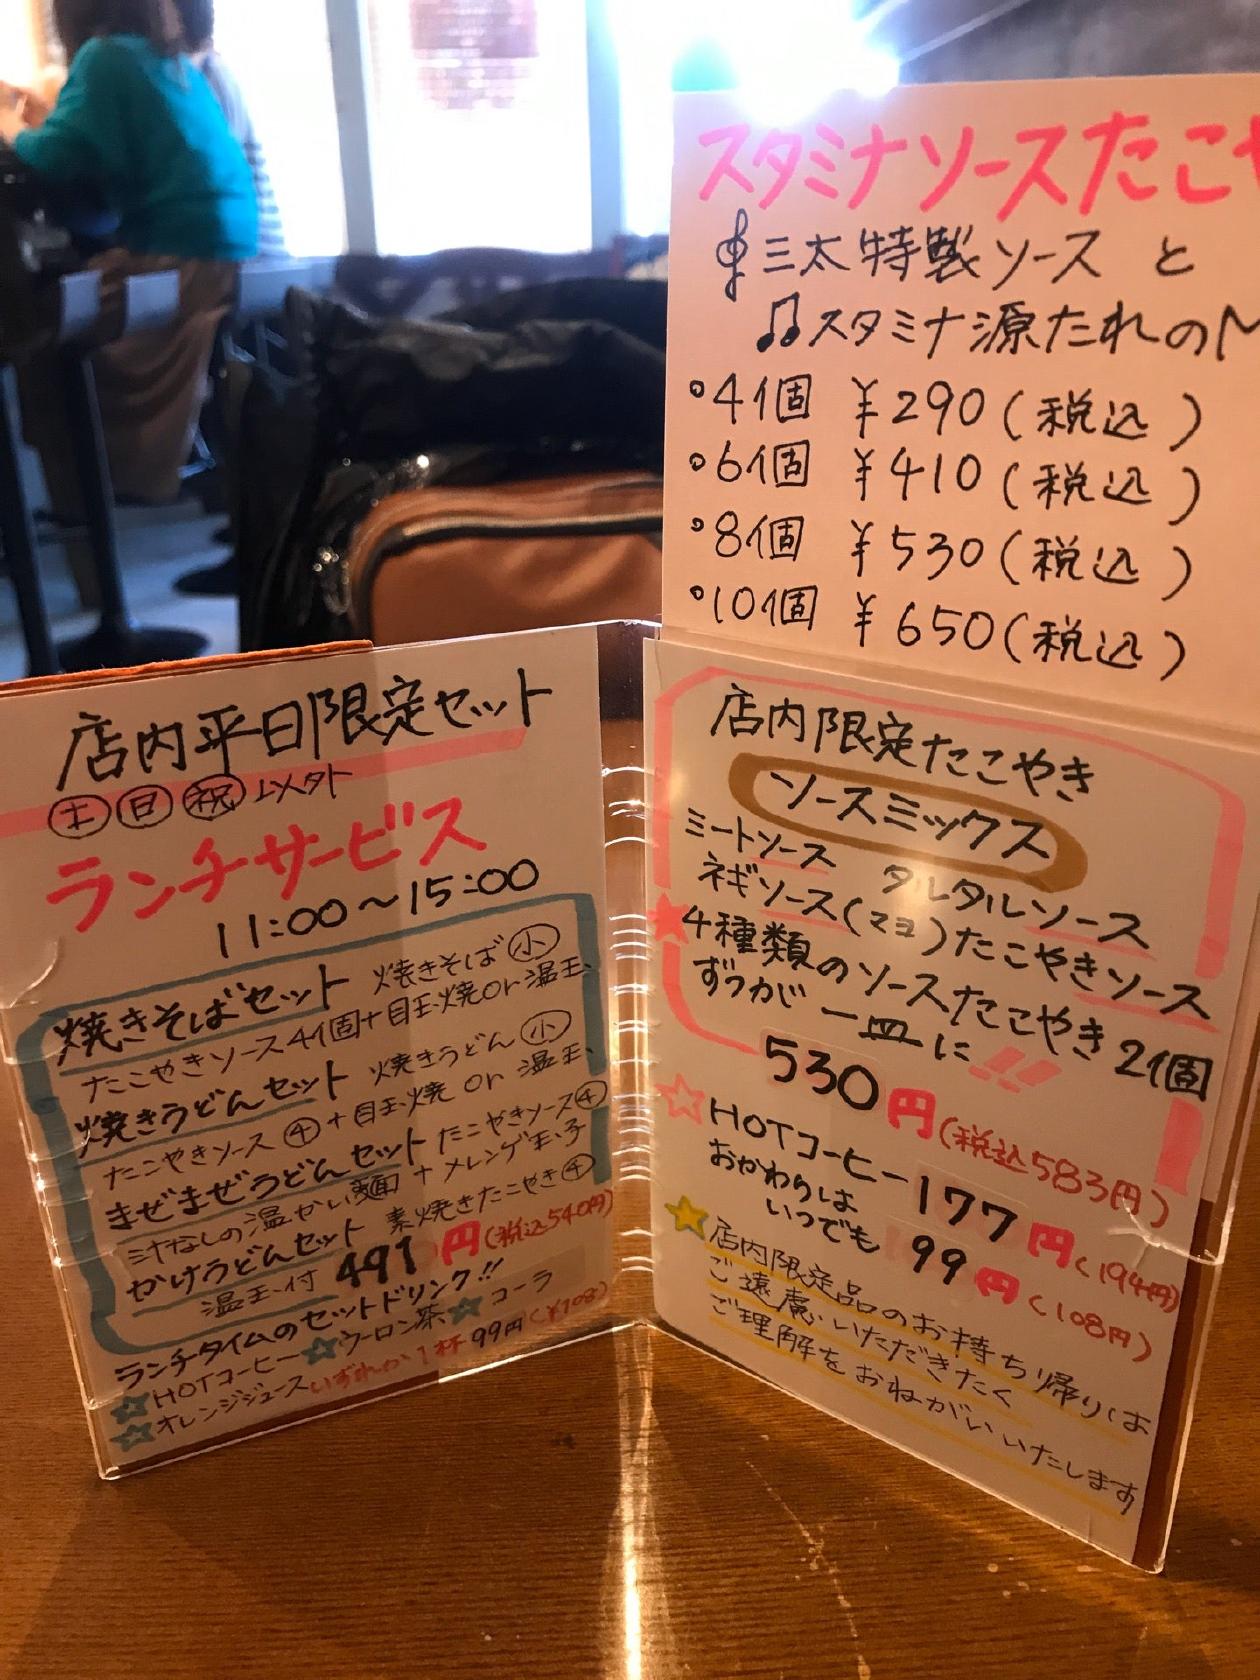 スタミナソースたこ
三太特製ソース と
スタミナ源たれの
・4個 ¥290(税込)
・6個 ¥410(税込)
・8個 ¥530(税込)
・10個 ¥650(税込)
店内平日限定セット
土 日 祝 以外
ランチサービス
11:00〜15:00
焼きそばセット 焼きそば 小
たこやきソース4個+目玉焼or温玉
焼きうどんセット 焼きうどん 小
たこやきソース 4 +目玉焼 or 温玉
まぜまぜうどんセット たこやきソース4
汁なしの温かい麺 + メレンゲ玉子
かけうどんセット 素焼きたこやき4
温玉付 491円(税込540円)
ランチタイムのセットドリンク!!
☆HOTコーヒー☆ウーロン茶☆コーラ
☆オレンジジュースいずれか1杯99円(¥108)
店内限定たこやき
ソースミックス
ミートソース タルタルソース
ネギソース(マヨ)たこやきソース
★4種類のソースたこやき2個
ずつが一皿に!!
530円(税込583円)
☆HOTコーヒー177円(194円)
おかわりは
いつでも 99円(108円)
★店内限定品のお持ち帰りは
ご遠慮いただきたく
ご理解をおねがいいたします